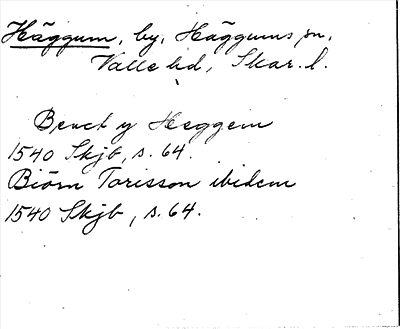 Häggum, by, Häggums sn,
Valle hd, Skar. l.
Benct y Heggem
1540 Skjb, s. 64.
Biörn Torisson ibidem
1540 Skjb, s. 64.